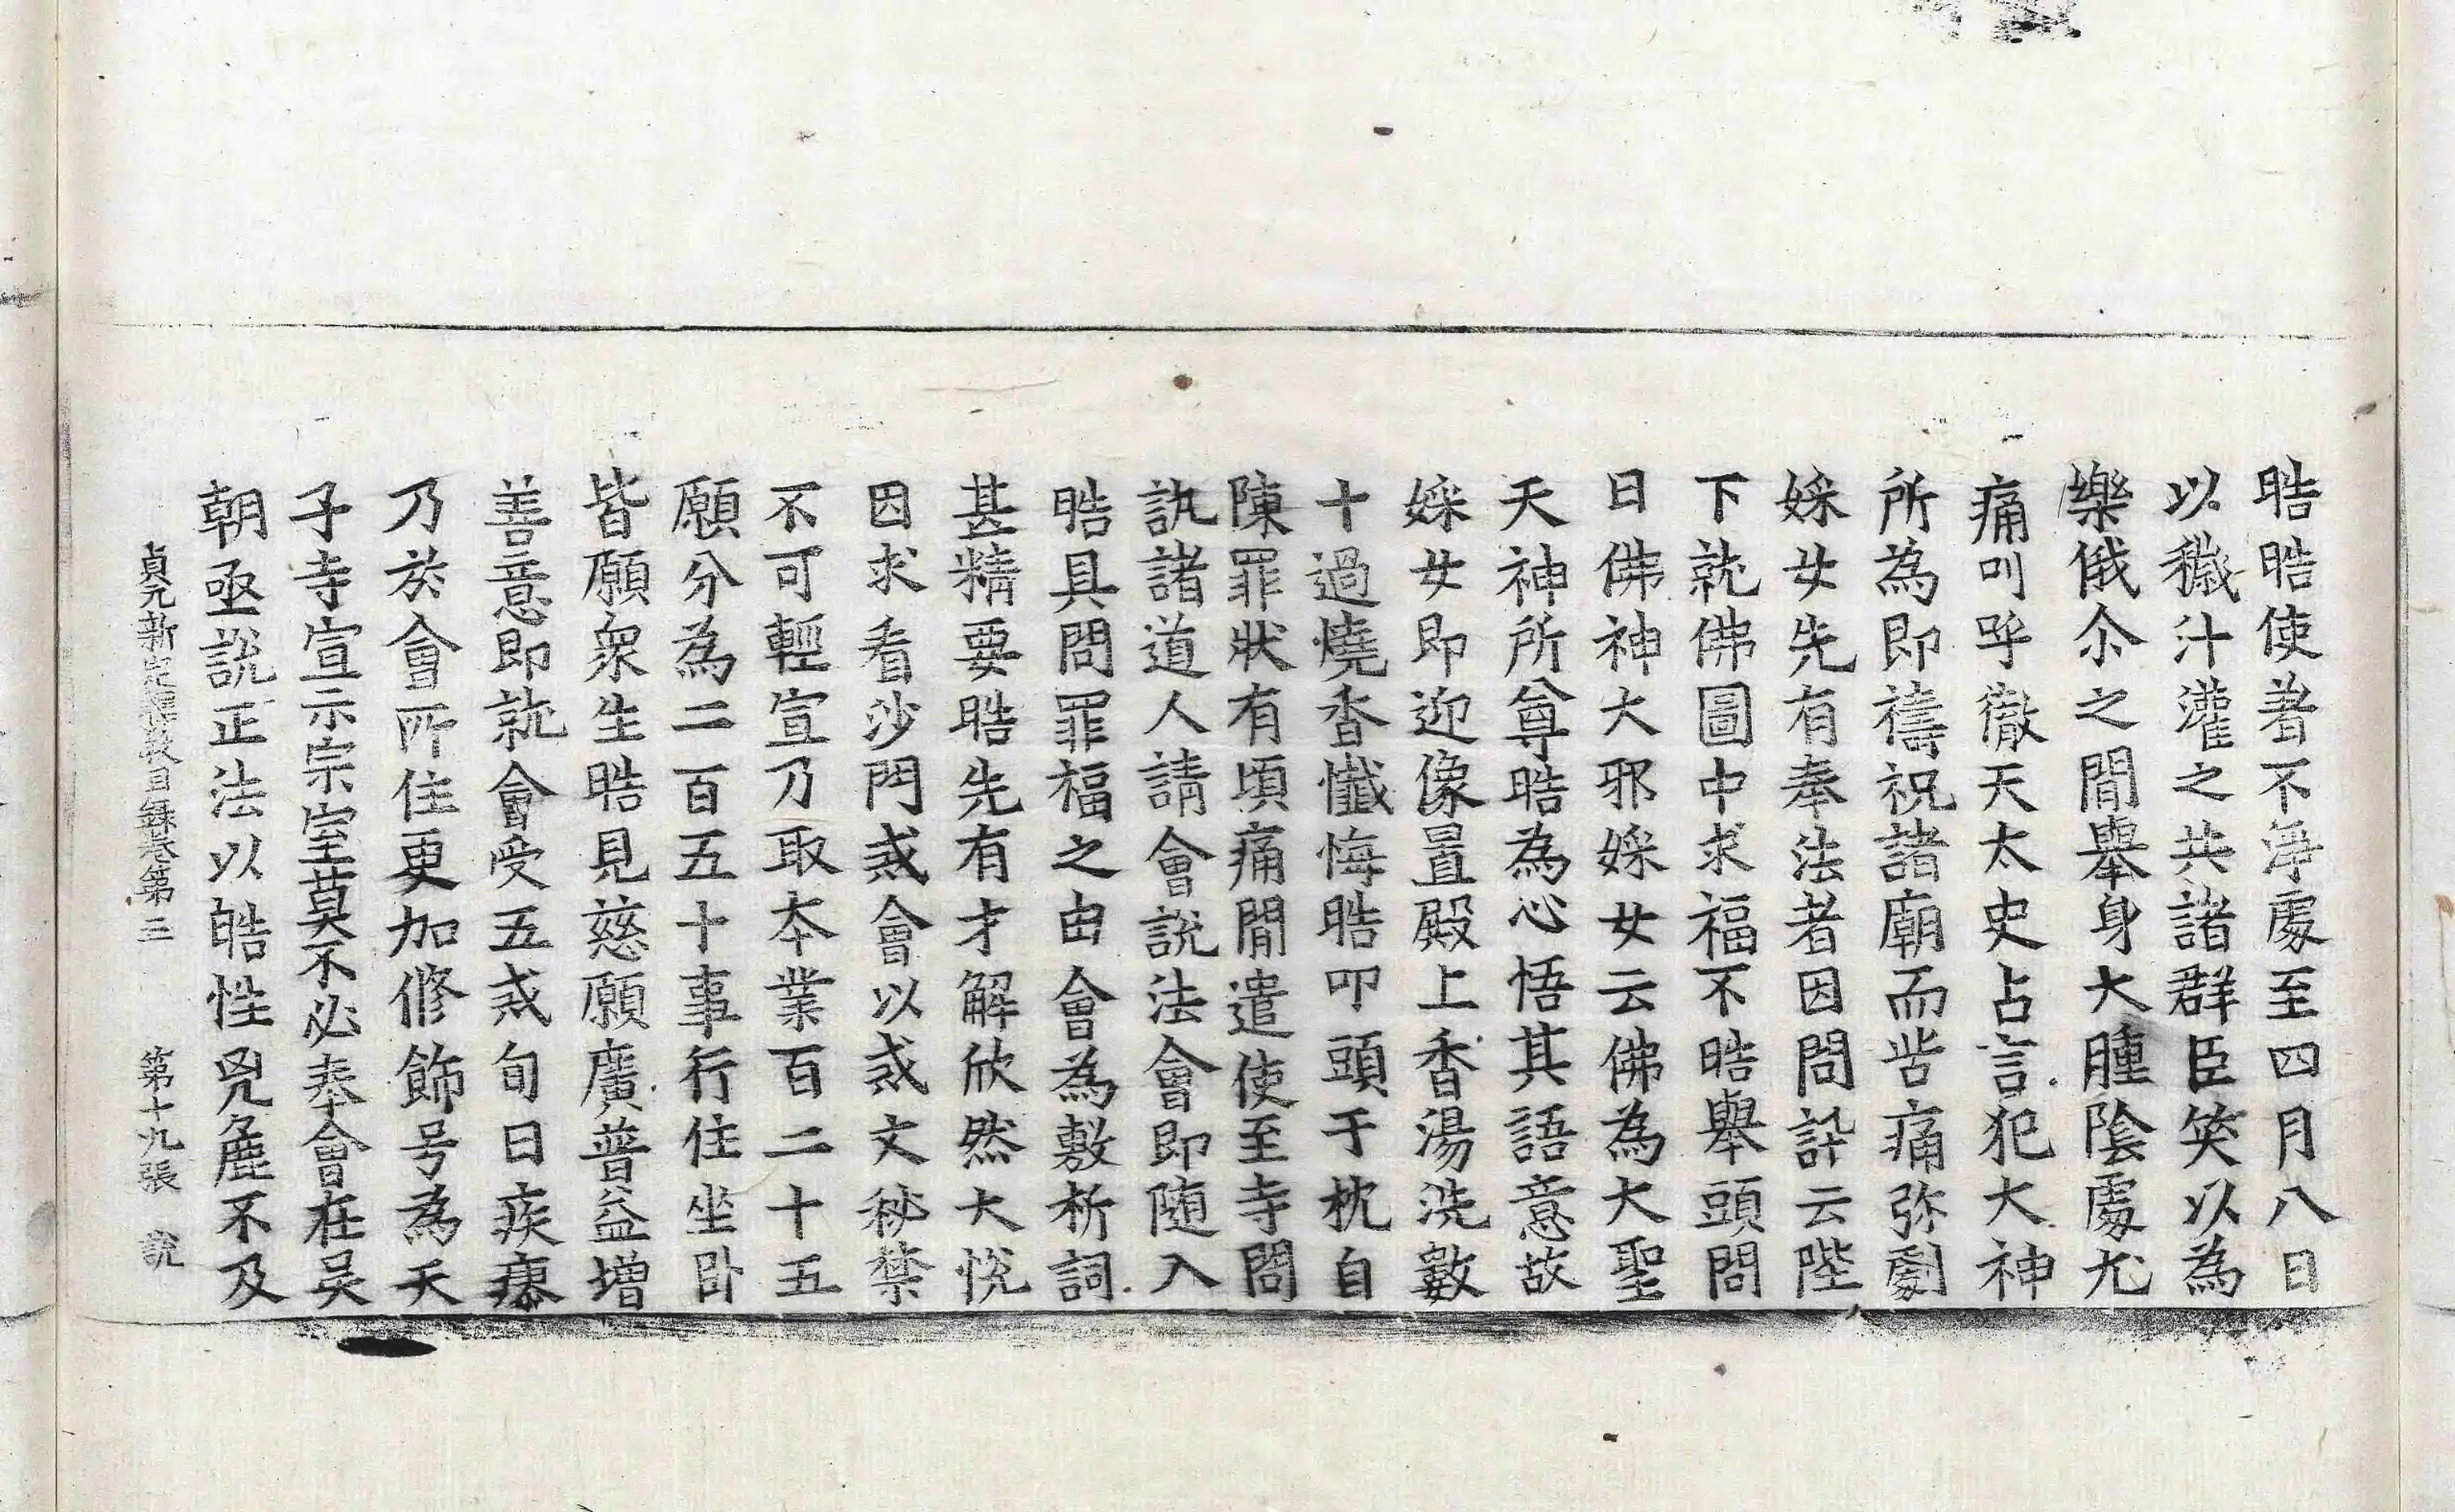 晧晧使著不淨處至四月八日
以穢汁灌之共諸群臣笑以為
樂俄尒之間舉身大腫陰處尤
痛叫呼徹天太史占言犯大神
所為即禱祝諸廟而皆痛弥劇
婇女先有奉法者因問訊云陛
下就佛圖中求福不晧舉頭問
日佛神大邪婇女云佛為大聖
天神所尊晧為心悟其語意故
婇女即迎像置殿上香湯洗數
十過燒香懺悔晧叩頭于枕自
陳罪狀有頃痛間遣使至寺問
訊諸道人請會說法會即随入
晧具問罪福之由會為敷析詞
甚精要晧先有才解欣然大悅
因求看沙門戒會以戒文秘禁
不可輕宣乃取本業百二十五
願分為二百五十事行住坐卧
皆願衆生晧見慈願廣普益增
善意即就會受五戒旬日疾瘳
乃於會所住更加修飾号為天
子寺宣示宗室莫不必奉會在吳
朝亟說正法以皓性兇麁不及
貞元新定釋教目録卷第三 第十九張 說